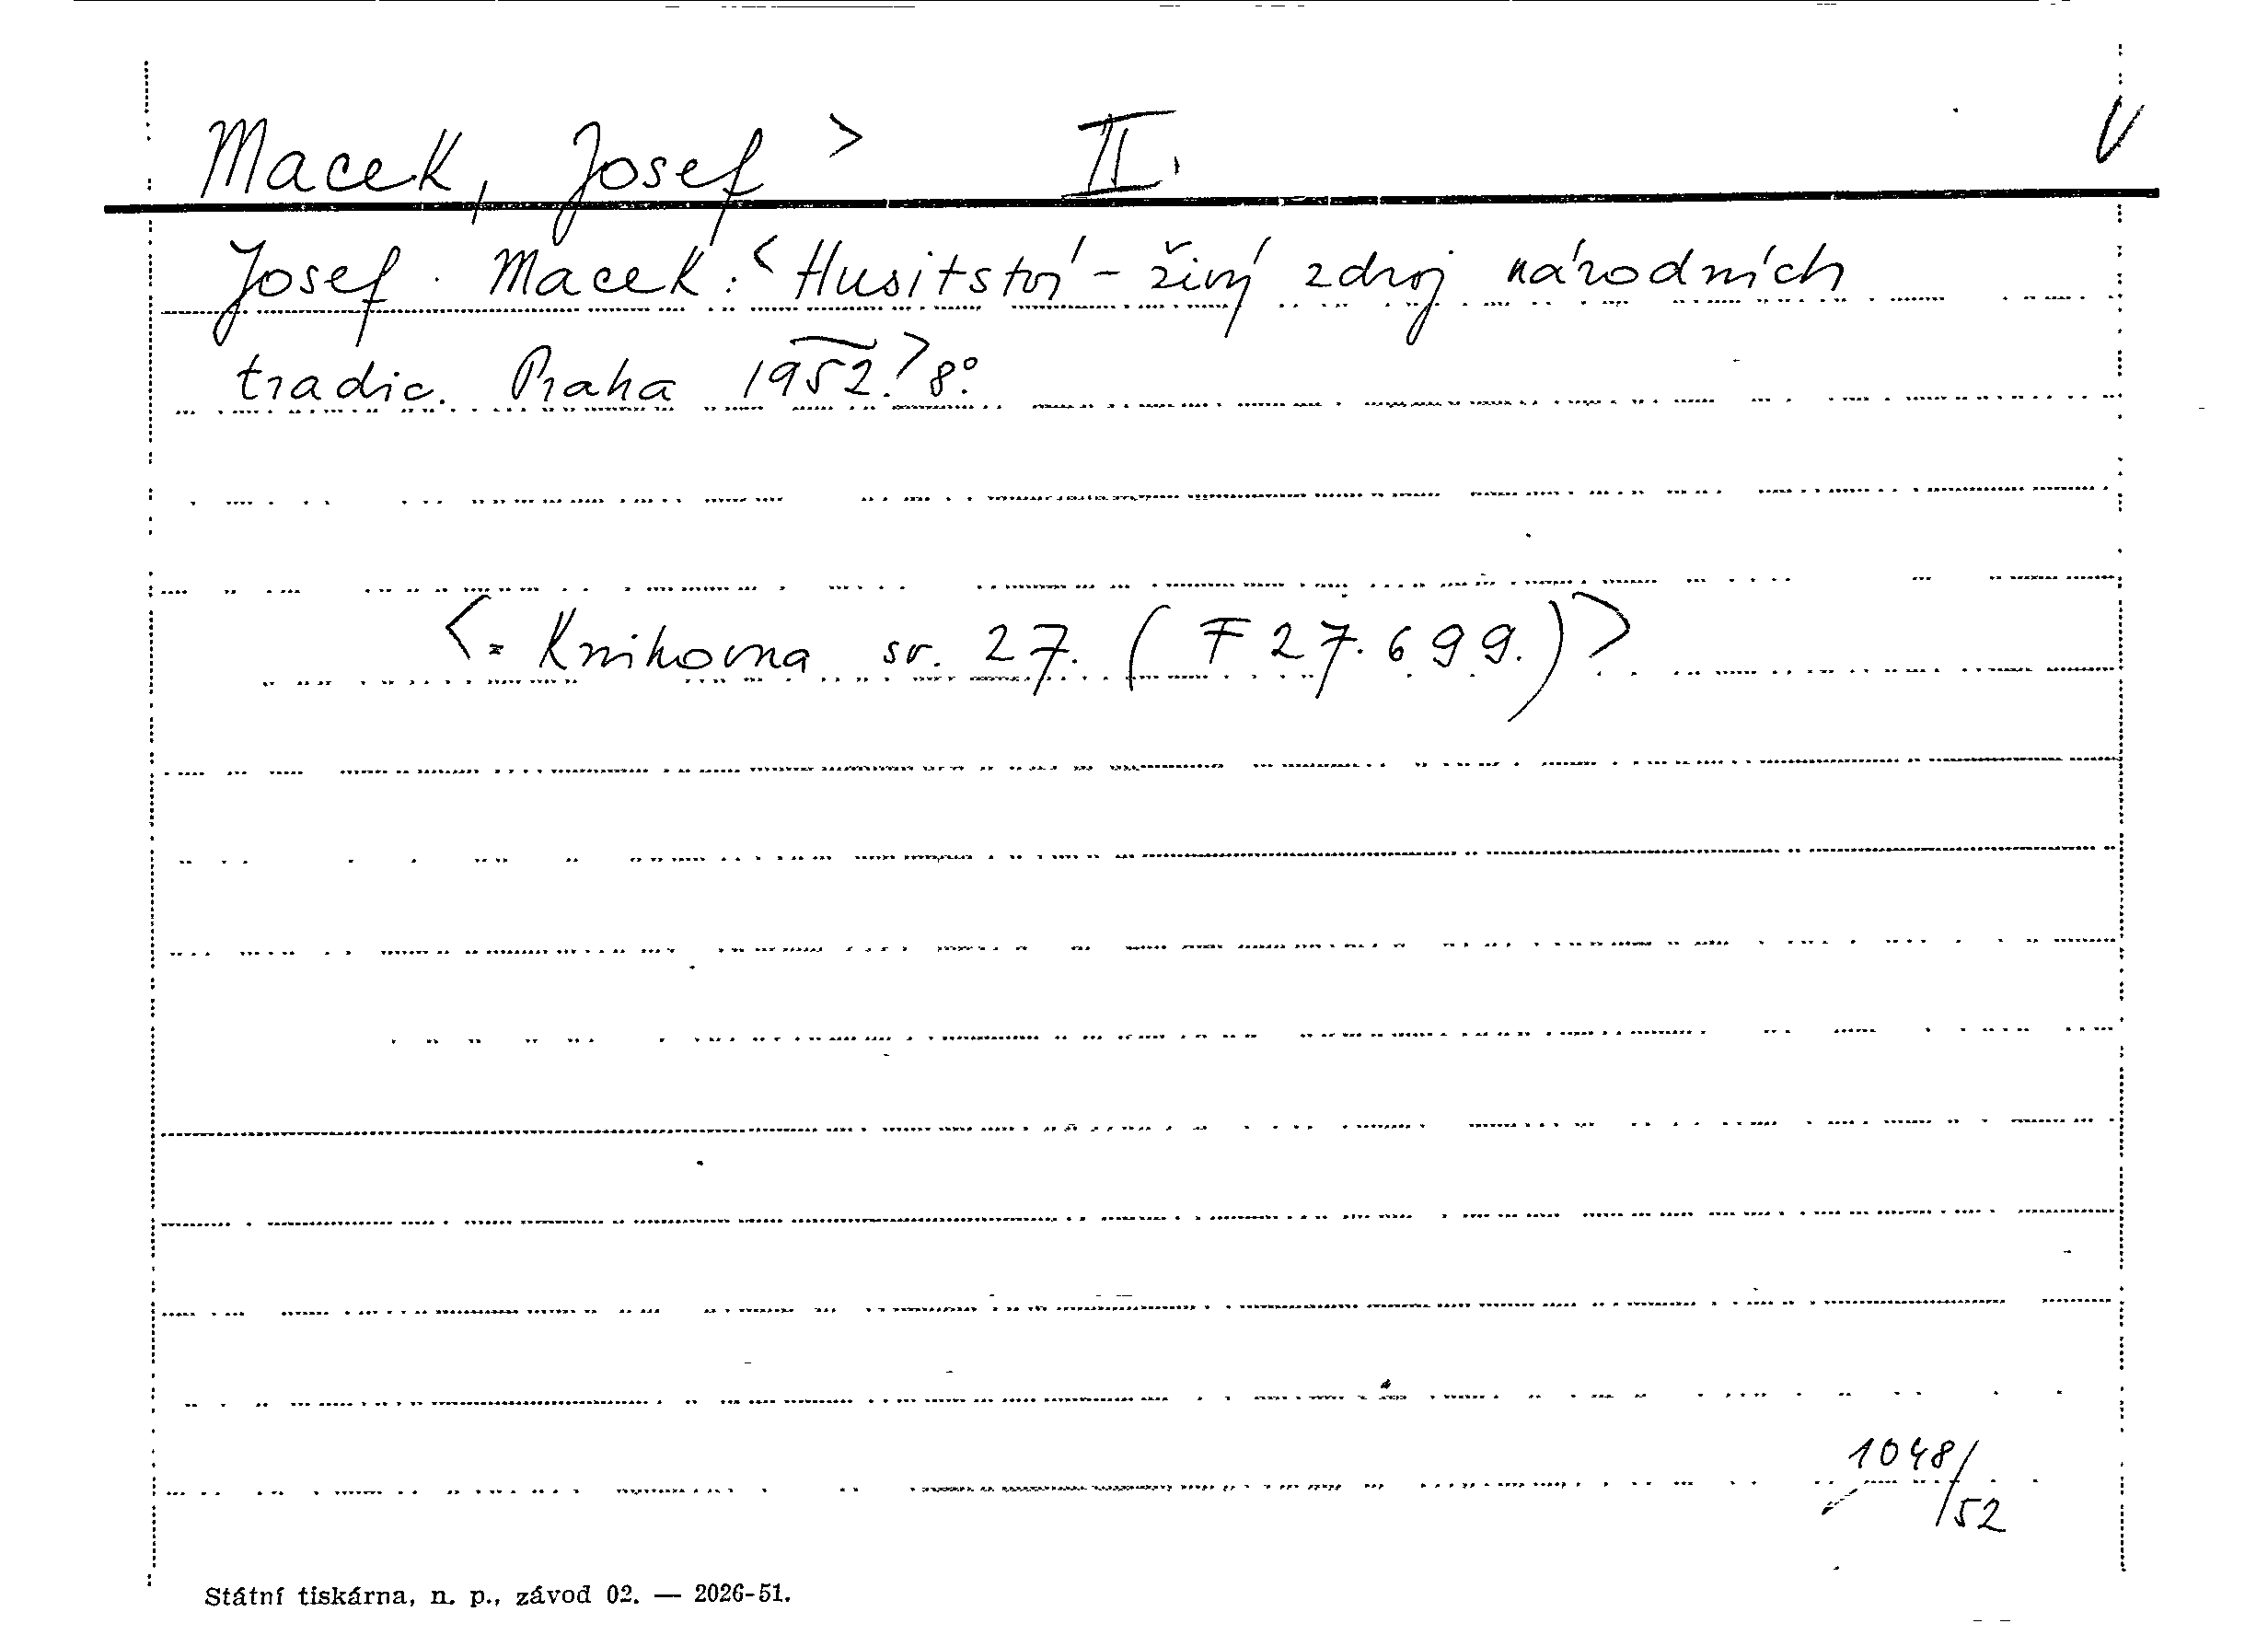 Macek, Josef > II. V
Josef Macek: <Husitství - živý zdroj národních
tradic. Praha 1952.> 8°.
<= Knihovna sv. 27. (F 27.699.)>
1048/
/52
Státní tiskárna, n. p., závod 02. — 2026-51.